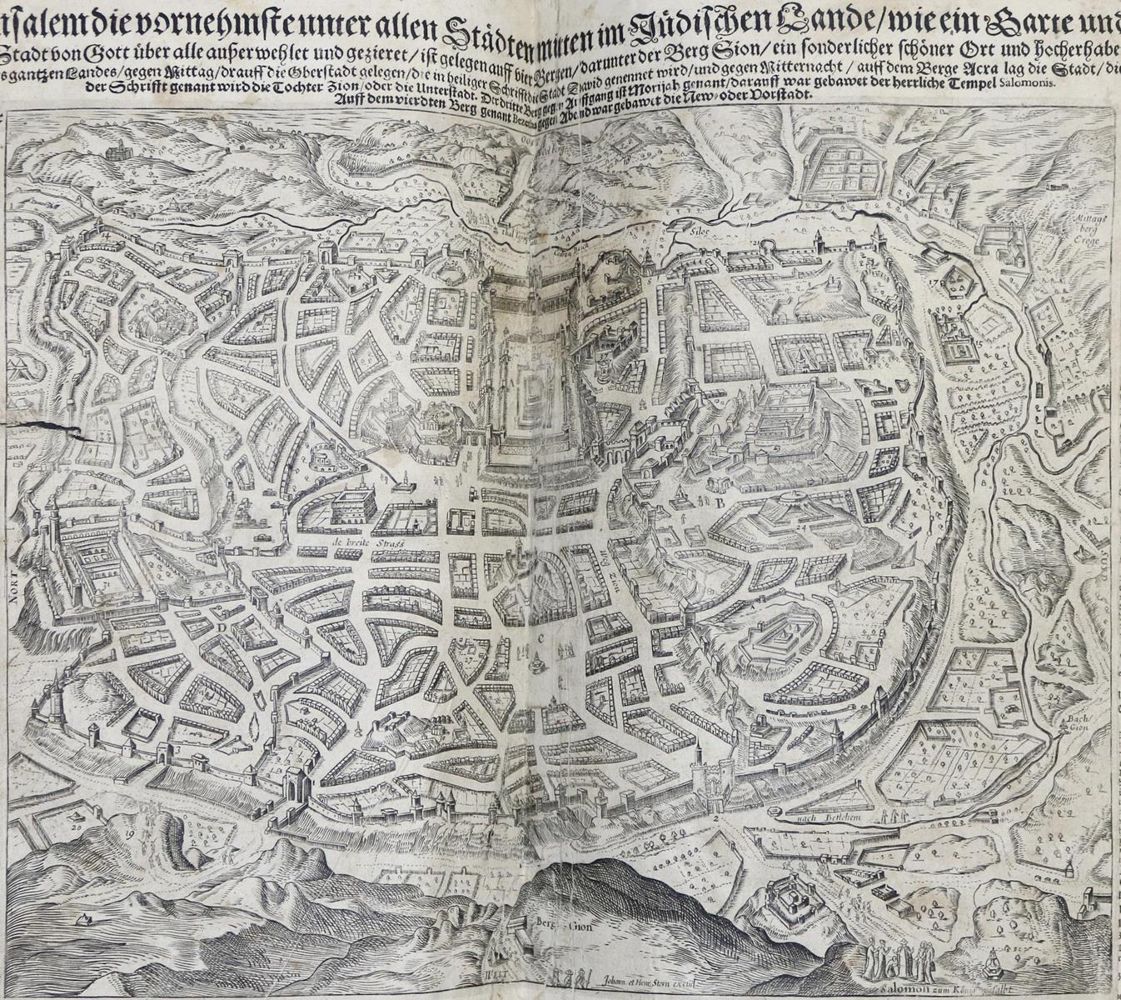 usalem die vornehmste unter allen Städten mitten im Jüdischen Lande/wie ein Garte und
Stadt von Gott über alle außerwehlet und gezieret/ist gelegen auff vier Bergen/darunter der Berg Sion/ein sonderlicher schöner Ort und hocherhabe
s gantzen Landes/gegen Mittag/drauff die Oberstadt gelegen/die in heiliger Schrifft die Stadt David genennet wird/und gegen Mitternacht/auff dem Berge Acra lag die Stadt/die
der Schrifft genant wird die Tochter Zion/oder die Unterstadt. Der dritte Berg gegen Auffgang ist Morijah genant/darauff war gebawet der herrliche Tempel Salomonis.
Auff dem vierdten Berg genant gegen Abend war gebawet die New-oder Vorstadt.
Siloe
21
Mittags
berg
Eroge
17
A
B
de breite Strass
24
NORT
D
C
A
2
Bach
Gion
nach Betlehem
20
19
Berg Gion
WEST
Johann et Henr. Stern excud
Salomon zum König gesalbt